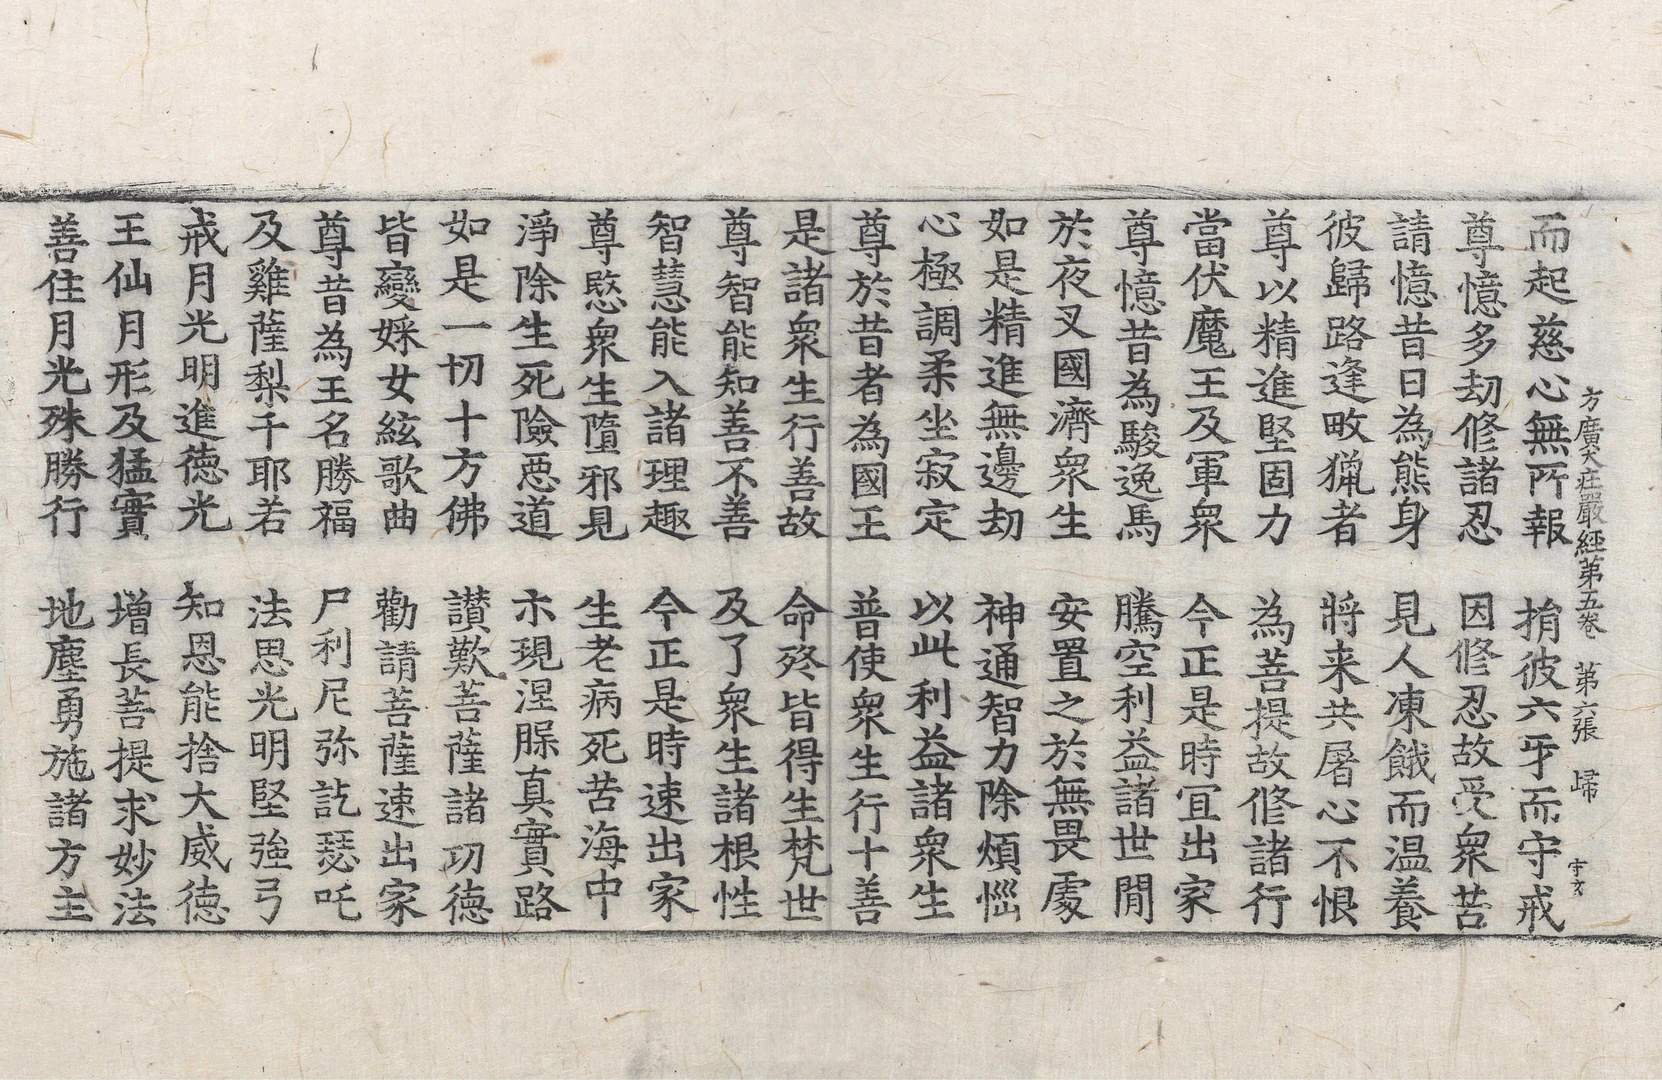 方廣大莊嚴經第五卷 第六張 歸 守文
而起慈心無所報 捐彼六牙而守戒
尊憶多劫修諸忍 因修忍故受衆苦
請憶昔日為熊身 見人凍餓而温養
彼歸路逢畋獵者 將来共屠心不恨
尊以精進堅固力 為菩提故修諸行
當伏魔王及軍衆 今正是時宜出家
尊憶昔為駿逸馬 騰空利益諸世閒
於夜叉國濟衆生 安置之於無畏處
如是精進無邊劫 神通智力除煩惱
心極調柔坐寂定 以此利益諸衆生
尊於昔者為國王 普使衆生行十善
是諸衆生行善故 命終皆得生梵世
尊智能知善不善 及了衆生諸根性
智慧能入諸理趣 今正是時速出家
尊愍衆生墮邪見 生老病死苦海中
淨除生死險惡道 示現涅槃真實路
如是一切十方佛 讃歎菩薩諸功德
皆變婇女絃歌曲 勸請菩薩速出家
尊昔為王名勝福 尸利尼弥訖瑟吒
及雞薩梨千耶若 法思光明堅強弓
戒月光明進德光 知恩能捨大威德
王仙月形及猛實 增長菩提求妙法
善住月光殊勝行 地塵勇施諸方主